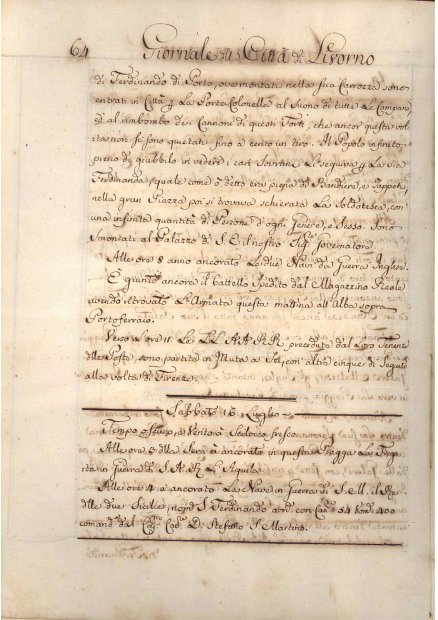 64 Giornale di Città di Livorno
di Ferdinando di Porto, ove montati nella sua Carrozza sono
entrati in Città p La Porto Colonella al Suono di tutte Le Campane,
ed al rimbombo de i Cannoni di questi Forti, che ancor questa vol-
ta non si sono quetati fino a cento un tiro. Il Popolo infinito
pieno di giubbilo in vedere i cari Sovrani Li seguiva p La Via
Ferdinanda, quale come è detto era piena di Bandiere, e Tappeti,
nella gran Piazza poi si trovava schierata La Soldatesca, con
una infinita quantità di Persone d'ogni Genere, e Sesso. Sono
Smontati al Palazzo di S. E. il nostro Sigr. Governatore.
Alle ore 8 anno ancorato Le due Navi da Guerra Inglese.
È giunto ancora il battello Spedito dal Magazzino Reale
avendo ritrovato L'Armata questa mattina all'Alba sopra
Portoferraio.
Verso L'ore 11 Le LL. AA. RR. precedute dal Loro Tenente
delle Poste, sono partite in Muta a Sei, con altre cinque di Seguito
alla volta di Firenze.
Sabbato 16 Luglio
Tempo oscuro, e Vento a Scilocco fresco
Alle ore 2 della Sera à ancorato in questa Piagga La Frega-
ta in Guerra di S. A. R. L'Aquila
Alle ore 4 à ancorato La Nave in Guerra di S. M. il Re
delle due Sicilie nom. S. Ferdinando arm. con Can. 64 Uom. 400
comand. dal Cap. Cav. D. Stefano S. Martino.